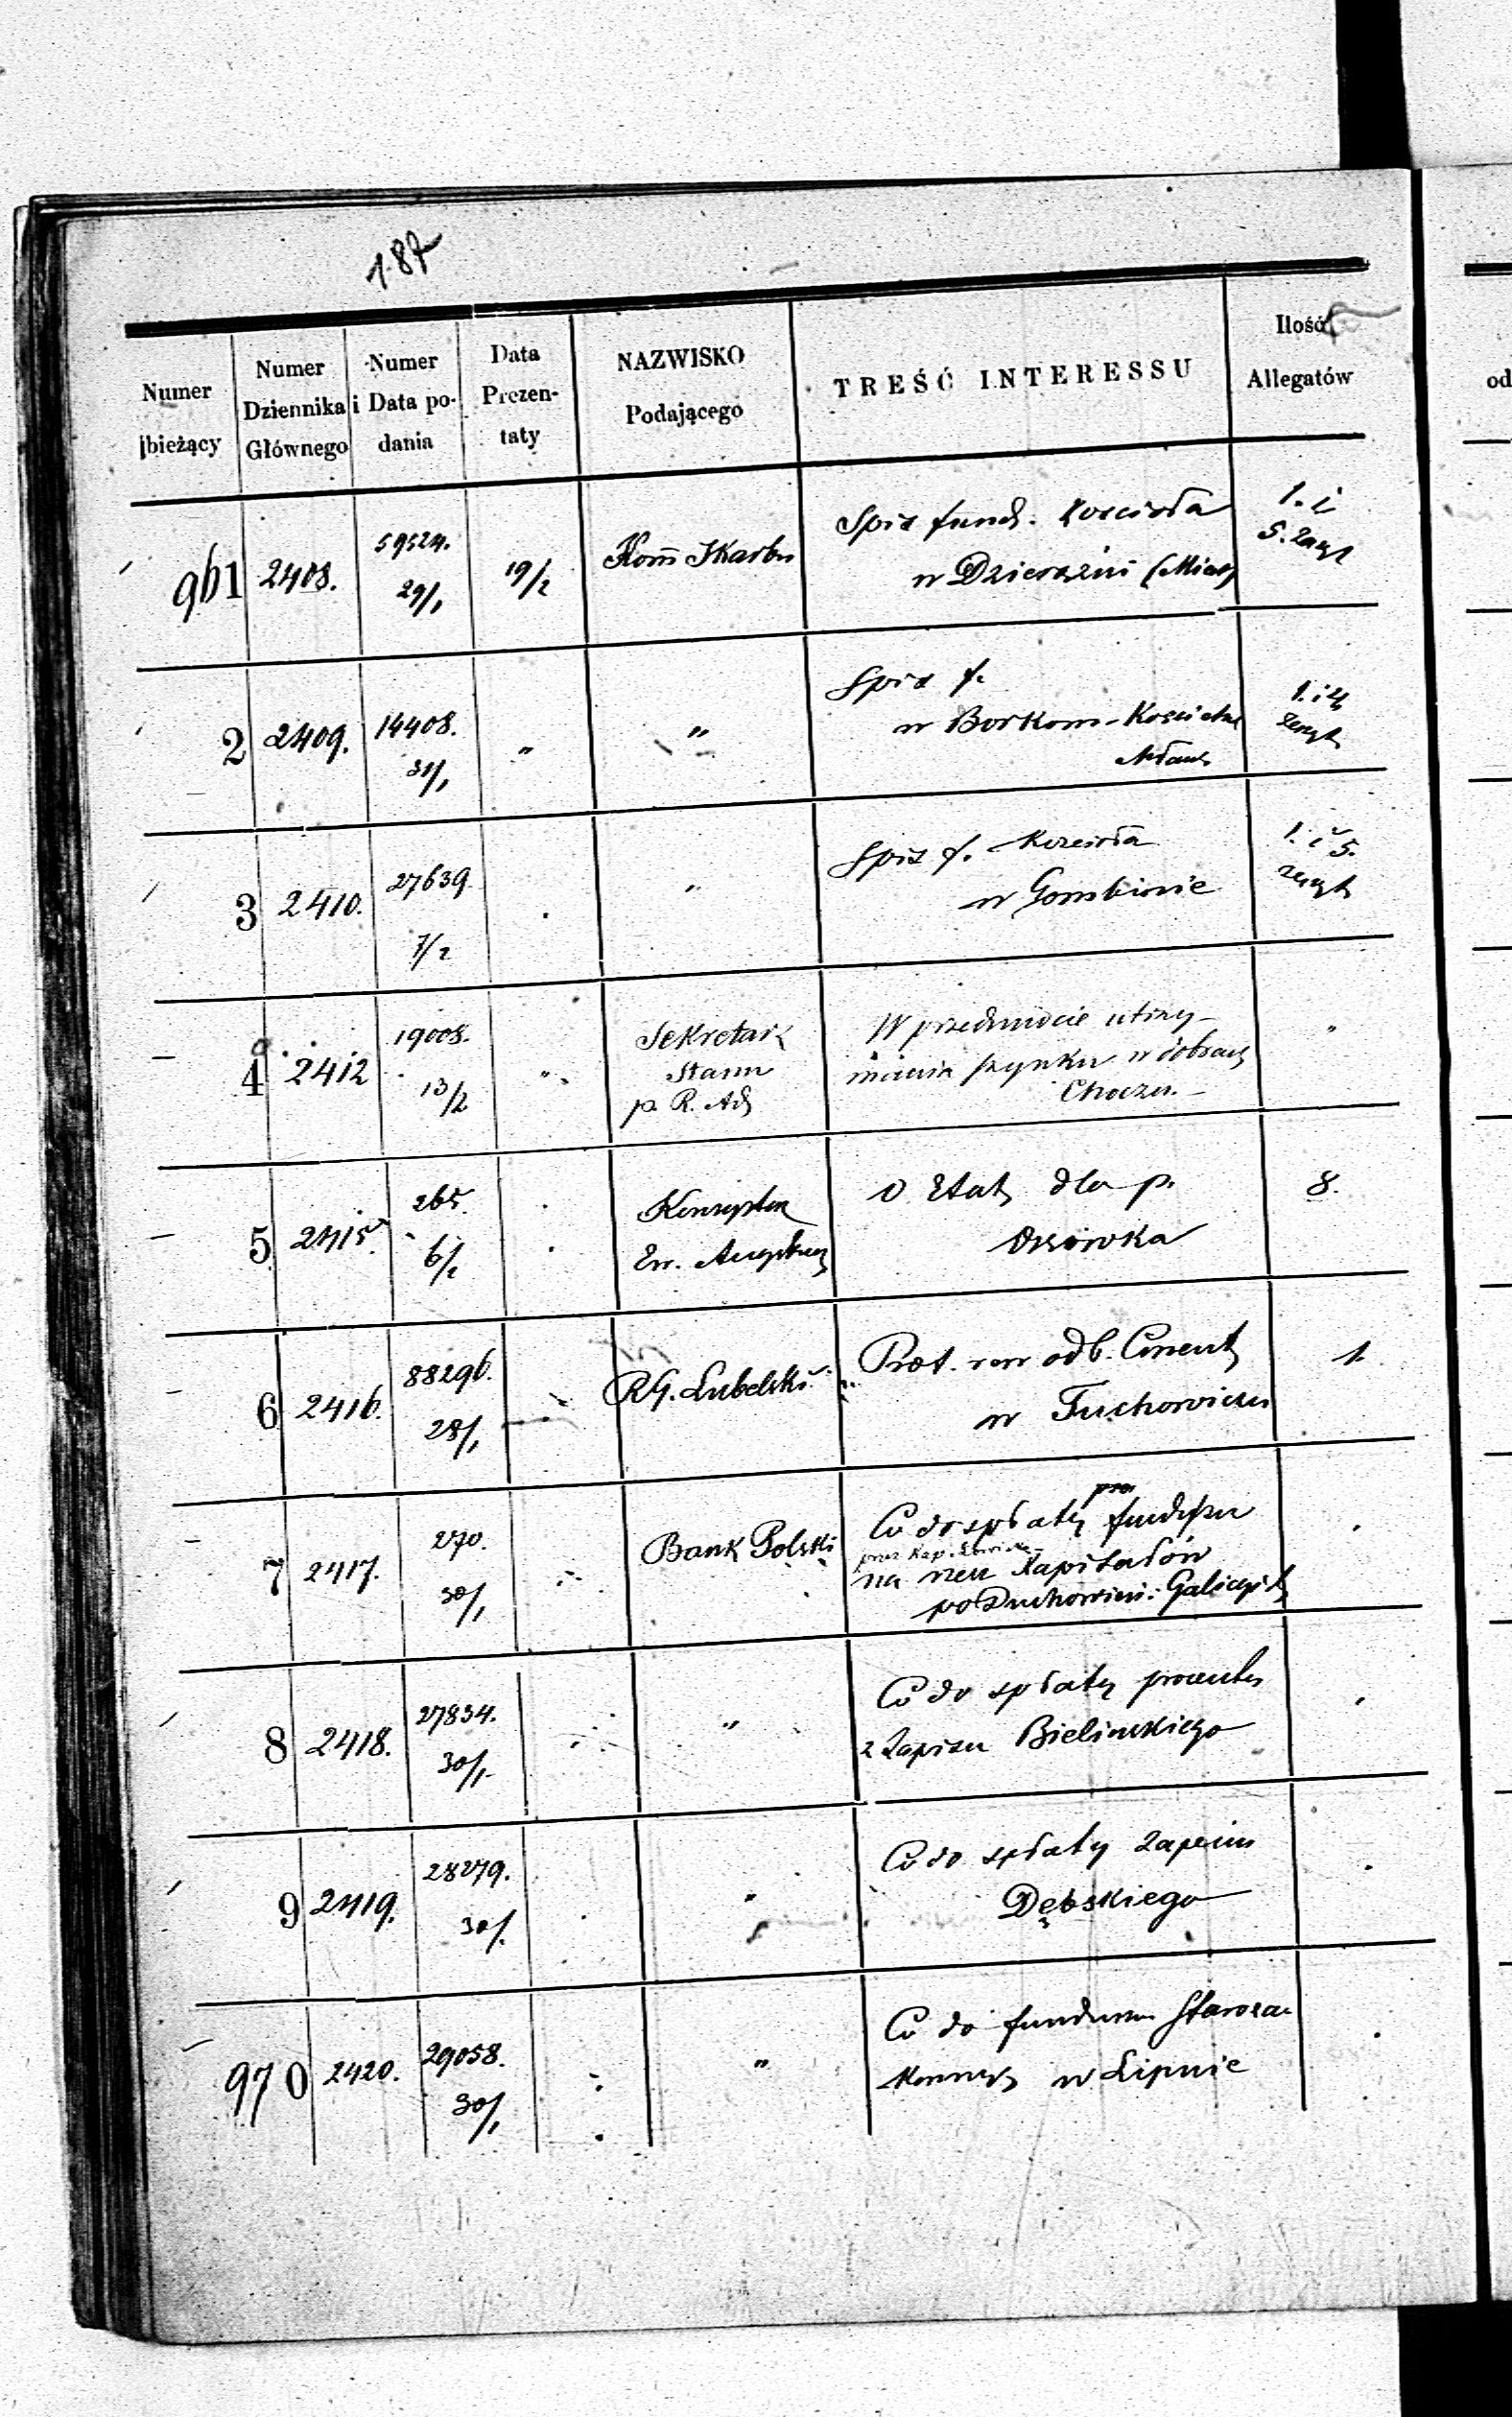 187
Numer bieżący
Numer Dziennika Głównego
Numer i Data podania
Data Prezentaty
NAZWISKO Podającego
TREŚĆ INTERESSU
Ilość Allegatów
961 2408. 59524. 29/1 19/2 Kom̃ Skarbu
Spis fund. Kościoła
w Dzierzżni
1. i
5.
2 2409. 14408. 31/1 " "
Spis f.
w Borkow-Kościelne
1. i 4
3 2410. 27639 7/2 "
Spis f. Kościoła
w Gombinie
1. i 5.
4 2412 19008. 13/2 "
Sekretarz
Stanu
p. R. Ad
W przedmiocie utrzy-
mania szynku w dobrach
"
5 2415. 265. 6/2
O Etat dla p.
Ossówka
8.
6 2416. 88296. 28/1 RG. Lubelski
w Tuchowiczu
1.
7 2417. 270. 30/1 Bank Polski
Co do spłaty funduszu
na rzecz Kapitałów
po Duchowień:
8 2418. 27834. 30/1 "
Co do spłaty procentu
z Zapisu Bielinskiego
9 2419. 28279. 30/1 "
Co do spłaty Zapisu
Dębskiego
970 2420. 29058. 30/1 "
Co do funduszu Staroza-
konnych w Lipnie